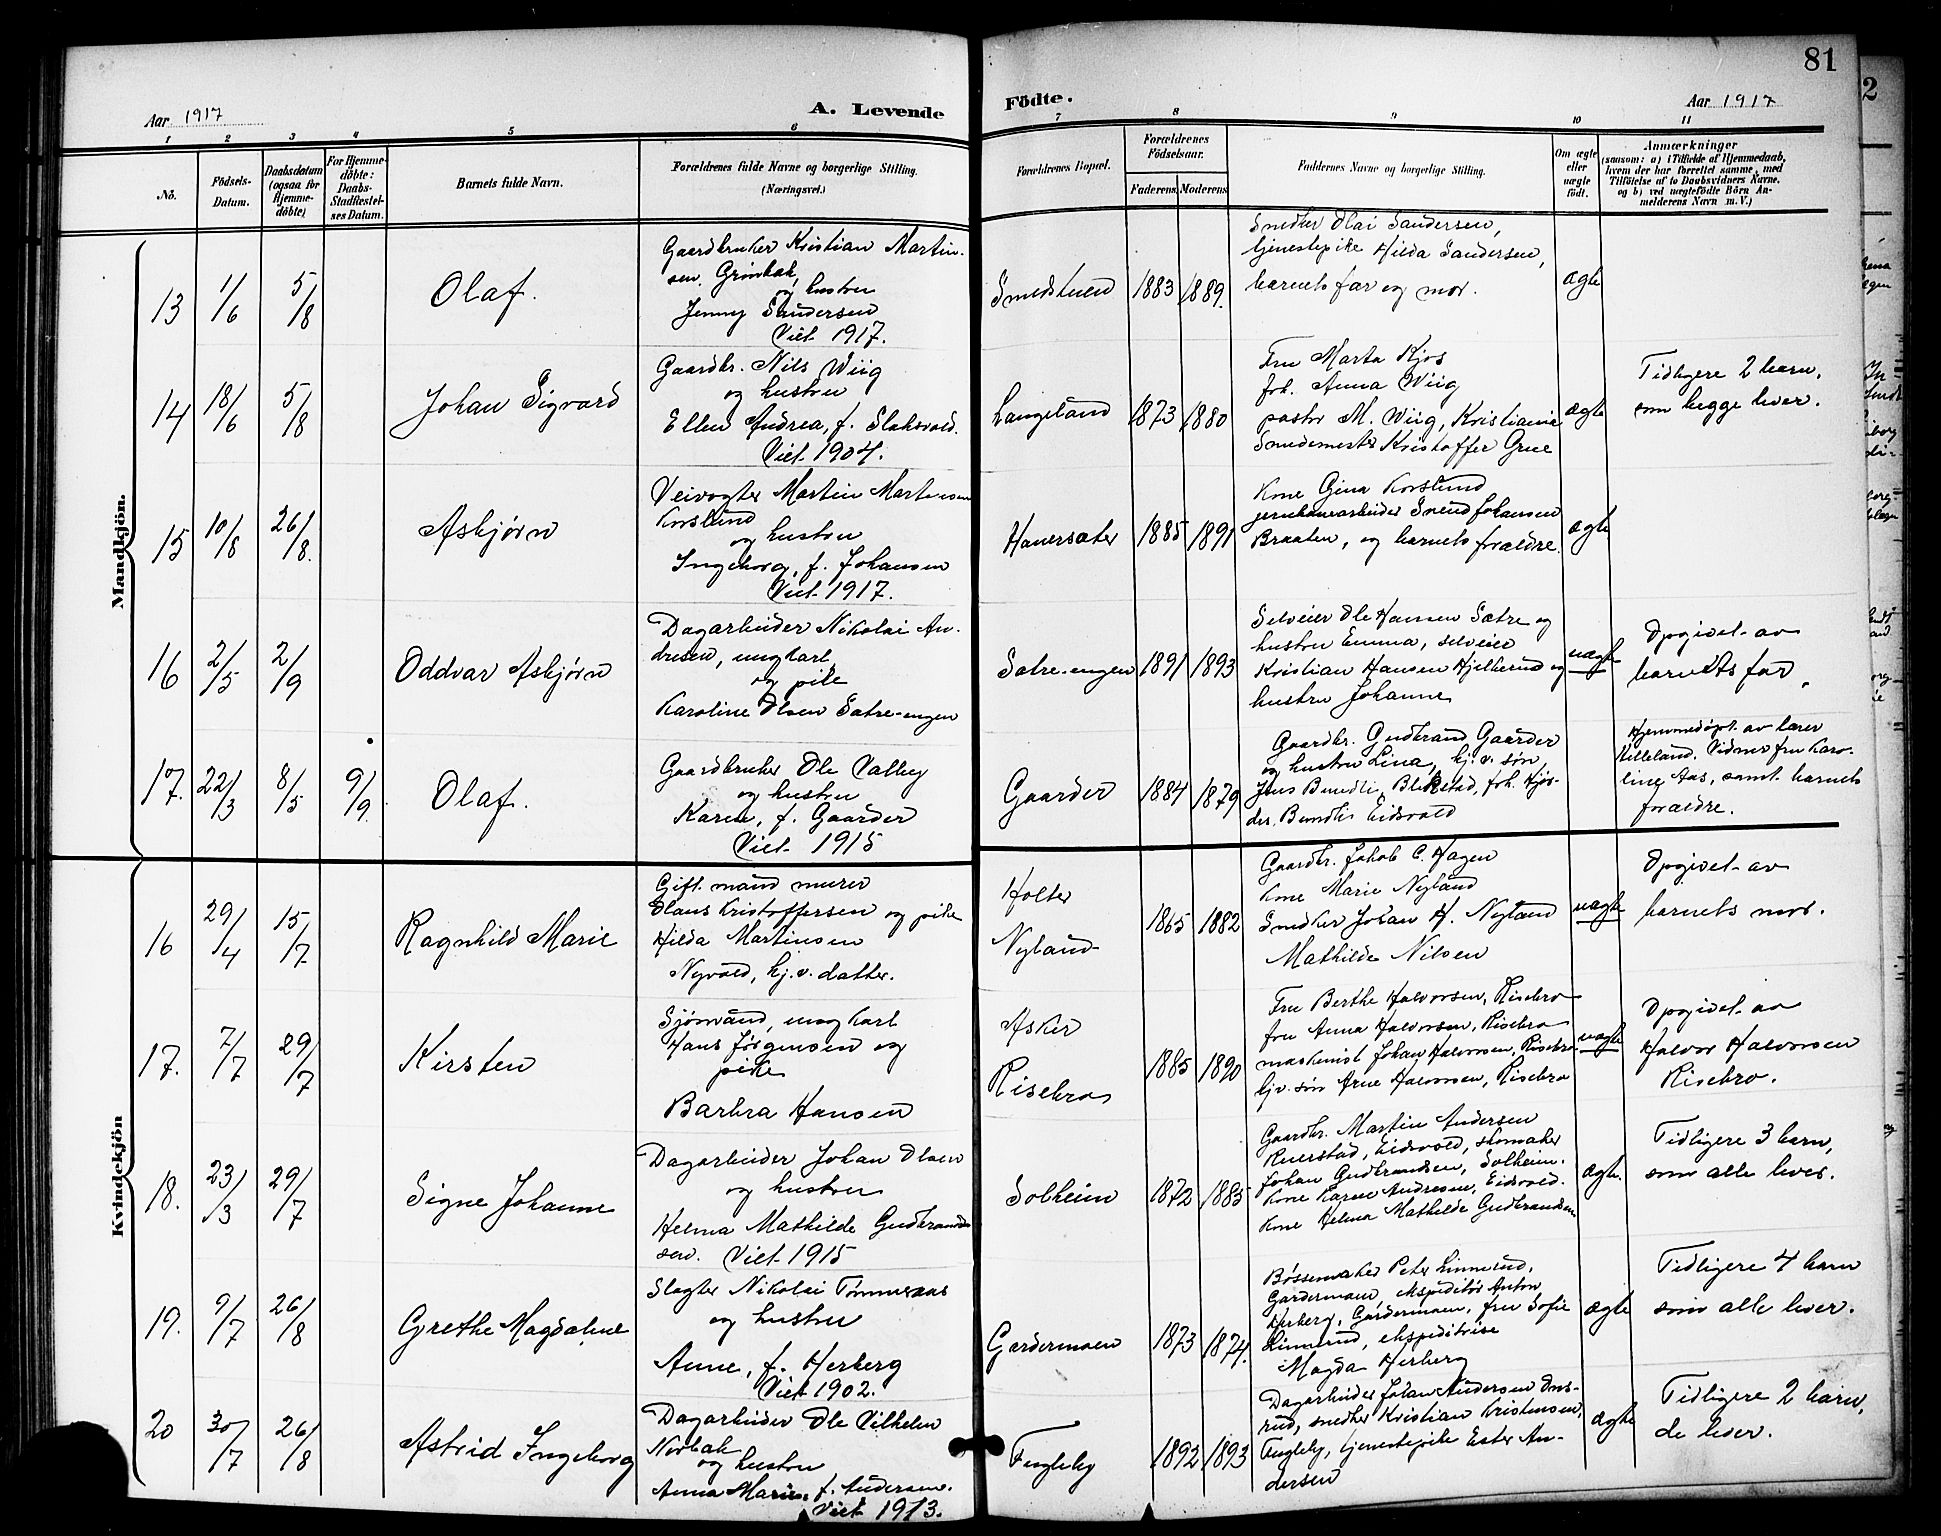 81
2
Aar 1917
A. Levende
Födte.
Aar 1917
1 2 3 4 5 6
7 8 9 10 11
No.
Födsels-
Datum.
Daabsdatum
(ogsaa for
Hjemme-
döbte)
For Hjemme-
döbte:
Daabs-
Stadfæstel-
ses Datum.
Barnets fulde Navn.
Forældrenes fulde Navne og borgerlige Stilling.
(Næringsvei.)
Forældrenes Bopæl.
Forældrenes
Födselsaar.
Faderens
Moderens
Faddernes Navne og borgerlige Stilling.
Om ægte
eller
uægte
födt.
Anmærkninger
(saasom: a) i Tilfælde af Hjemmedaab,
hvem der har forrettet samme, med
Tilföielse af to Daabsvidners Navne,
og b) ved uægtefödte Börn An-
melderens Navn m. V.)
Mandkjön.
13 1/6 5/8 Olaf.
Gaardbruker Kristian Martin-
sen, Grönbak,
og hustru
Jenny Sandersen
Viet 1917.
Smedstuen 1883 1889.
Snedker Olai Sandersen,
tjenestepike Hilda Sandersen,
barnets far og mor.
ægte
14 18/6 5/8 Johan Sigvard
Gaardbr. Nils Wiig
og hustru
Ellen Andrea, f. Slaksvold.
Viet 1904.
Langeland 1873 1880
Fru Marta Kjos
frk. Anna Wiig
pastor M. Wiig, Kristiania
Smedemester Kristoffer Grue
ægte
Tidligere 2 barn,
som begge lever.
15 10/8 26/8. Asbjørn
Veivogter Martin Martinsen
Korslund
og hustru
Ingeborg, f. Johansen
Viet 1917.
Hanersæter 1885 1891
Kone Gina Korslund
jernbanearbeider Svend Johansen
Braaten, og barnets forældre.
ægte
16 2/5 2/9 Oddvar Asbjørn
Dagarbeider Nikolai An-
dresen, ungkarl
og pike
Karoline Olsen Sætre-engen
Sætre-engen 1891 1893
Selveier Ole Hansen Sætre og
hustru Emma, selveier
Kristian Hansen Hjelkerud og
hustru Johanne
uægte
Opgivet av
barnets far.
17. 22/3 8/5 9/9. Olaf.
Gaardbruker Ole Valby
og hustru
Karen, f. Gaarder
Viet 1915
Gaarder 1884 1879
Gaardbr. Gudbrand Gaarder
og hustru Lina, hj.v. søn
Jens Bundli Blekstad, frk. Hjør-
dis Bundli Eidsvold
Hjemmedøpt av lærer
Killeland. Vidner fru Karo-
line Aas, samt barnets
forældre.
Kvindekjön
16 29/4 15/7 Ragnhild Marie
Gift mand murer
Hans Kristoffersen og pike
Hilda Martinsen
Nyvold, hj. v. datter.
Holter
Nyland 1865 1882
Gaardbr. Jakob C. Hagen
Kone Marie Nyland
Snedker Johan H. Nyland
Mathilde Nilsen
uægte
Opgivet av
barnets mor.
17. 7/7 29/7 Kirsten
Sjømand, ungkarl
Hans Jørgensen og
pike
Barbra Hansen
Asker
Risebro 1885 1890
Fru Berthe Halvorsen, Risebro
fru Anna Halvorsen, Risebro
maskinist Johan Halvorsen, Risebro
hjv. søn Arne Halvorsen, Risebro
uægte
Opgivet av
Halvor Halvorsen
Risebro.
18. 23/3 29/7 Signe Johanne
Dagarbeider Johan Olsen
og hustru
Helma Mathilde Gudbrand-
sen. Viet 1915
Solheim 1872 1885
Gaardbr. Martin Andersen
Ruerstad, Eidsvold, skomaker
Johan Gudbrandsen, Solheim.
Kone Karen Andresen, Eidsvold.
Kone Helma Mathilde Gudbrandsen
ægte.
Tidligere 3 barn,
som alle lever.
19. 9/7 26/8 Grethe Magdalene
Slagter Nikolai Tømmeraas
og hustru
Anne, f. Herberg
Viet 1902.
Gardermoen 1873 1874.
Bøssemaker Peter Linnerud,
Gardermoen, ekspeditør Anton
Herberg, Gardermoen, fru Sofie
Linnerud, ekspeditrise
Magda Herberg
ægte
Tidligere 4 barn
som alle lever.
20 30/7 26/8 Astrid Ingeborg
Dagarbeider Ole Vilhelm
Norbak
og hustru
Anna Marie, f. Andersen.
Viet 1913.
Fugleby 1892 1893
Dagarbeider Johan Andersen Ons-
rud, snedker Kristian Kristensen,
Fugleby, tjenestepike Ester An-
dersen
ægte
Tidligere 2 barn,
de lever.